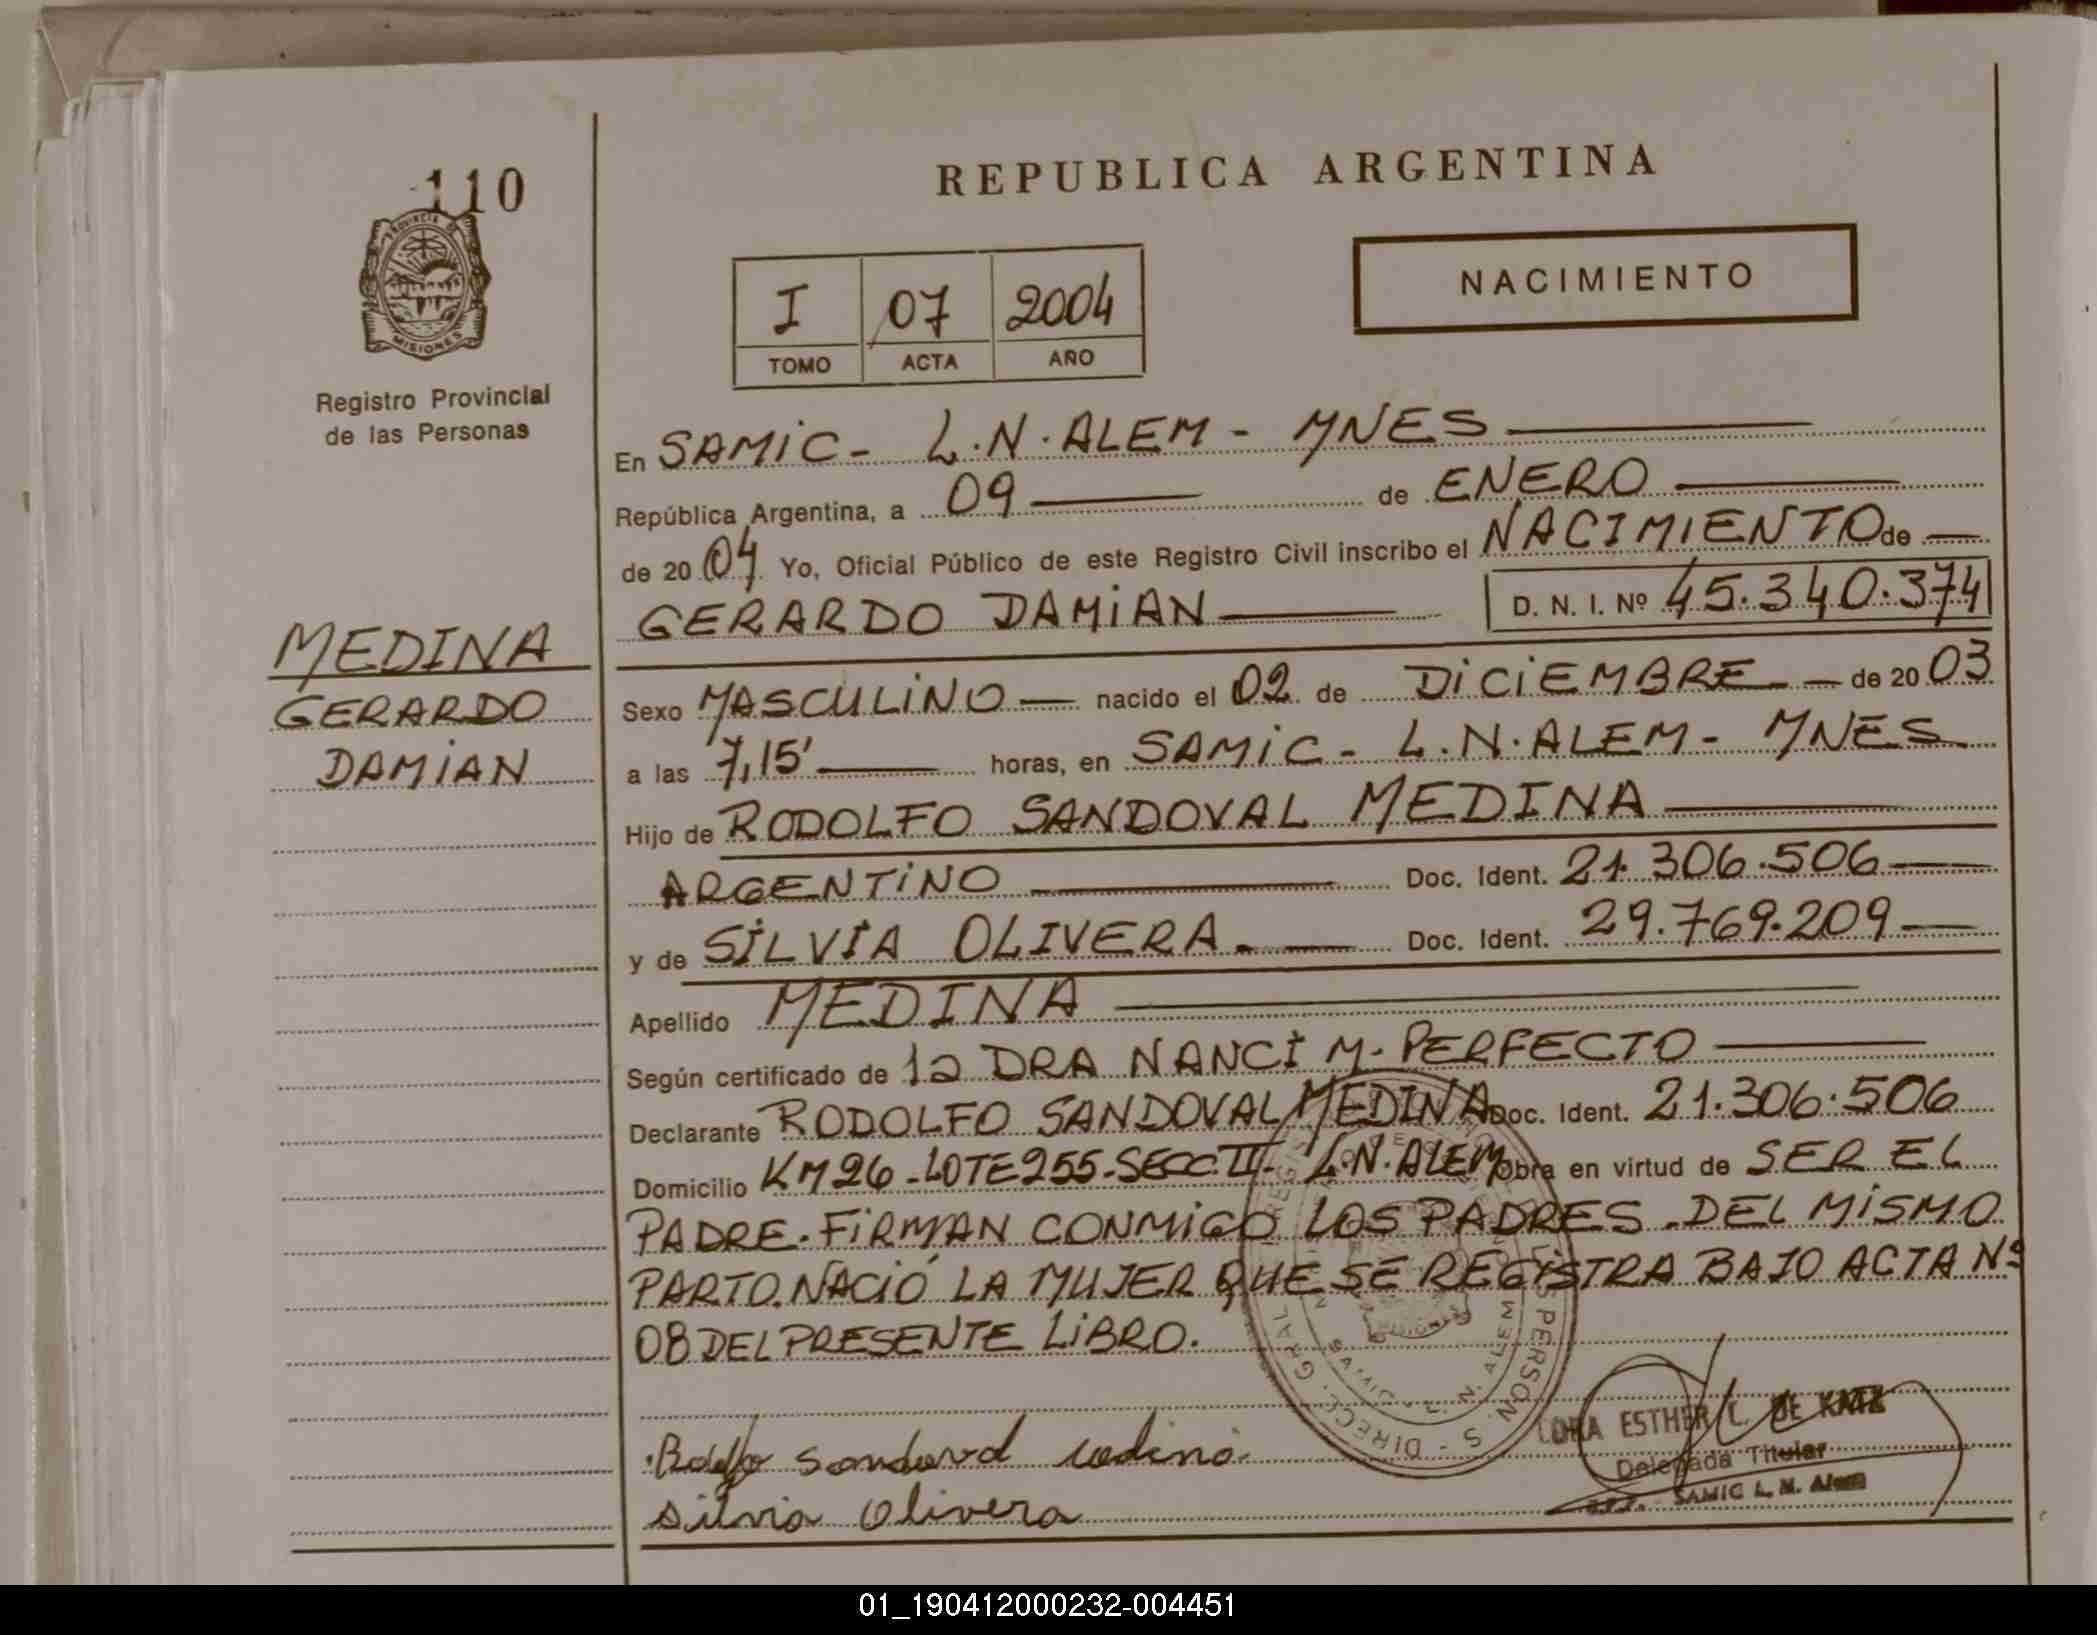 110
PROVINCIA DE
MISIONES
Registro Provincial
de las Personas
MEDINA
GERARDO
DAMIAN
REPUBLICA ARGENTINA
I 07 2004
TOMO ACTA AÑO
NACIMIENTO
En SAMIC - L.N. ALEM - MNES
República Argentina, a 09 de ENERO
de 20 04 Yo, Oficial Público de este Registro Civil inscribo el NACIMIENTO de
GERARDO DAMIAN D. N. I. Nº 45.340.374
Sexo MASCULINO nacido el 02 de DICIEMBRE de 20 03
a las 7,15' horas, en SAMIC - L.N. ALEM - MNES
Hijo de RODOLFO SANDOVAL MEDINA
ARGENTINO Doc. Ident. 21.306.506
y de SILVIA OLIVERA. Doc. Ident. 29.769.209
Apellido MEDINA
Según certificado de la DRA NANCI M. PERFECTO
Declarante RODOLFO SANDOVAL MEDINA Doc. Ident. 21.306.506
Domicilio KM 26 - LOTE 255 - SECC. II - L.N. ALEM Obra en virtud de SER EL
PADRE. FIRMAN CONMIGO LOS PADRES. DEL MISMO
PARTO. NACIÓ LA MUJER QUE SE REGISTRA BAJO ACTA Nº
08 DEL PRESENTE LIBRO.
Rodolfo Sandoval Medina
Silvia Olivera
ESTHER L. DE KATZ
Delegada Titular
SAMIC L. N. Alem
01_190412000232-004451